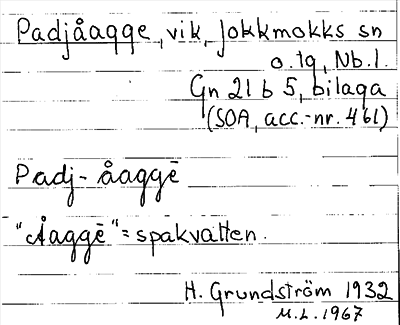 Padjåagge, vik, Jokkmokks sn
o. tg, Nb. l.
Gn 21 b 5, bilaga
(SOA, acc.-nr. 461)
Padj-åaggē
"Åaggē" = spakvatten.
H. Grundström 1932
M.L. 1967